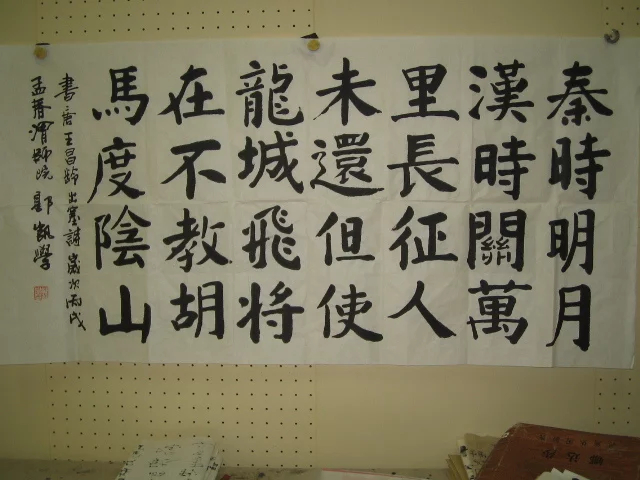 秦時明月
漢時關萬
里長征人
未還但使
龍城飛將
在不教胡
馬度陰山
書唐王昌齡出塞詩歲次丙戌
孟春渭師院 郭凱學